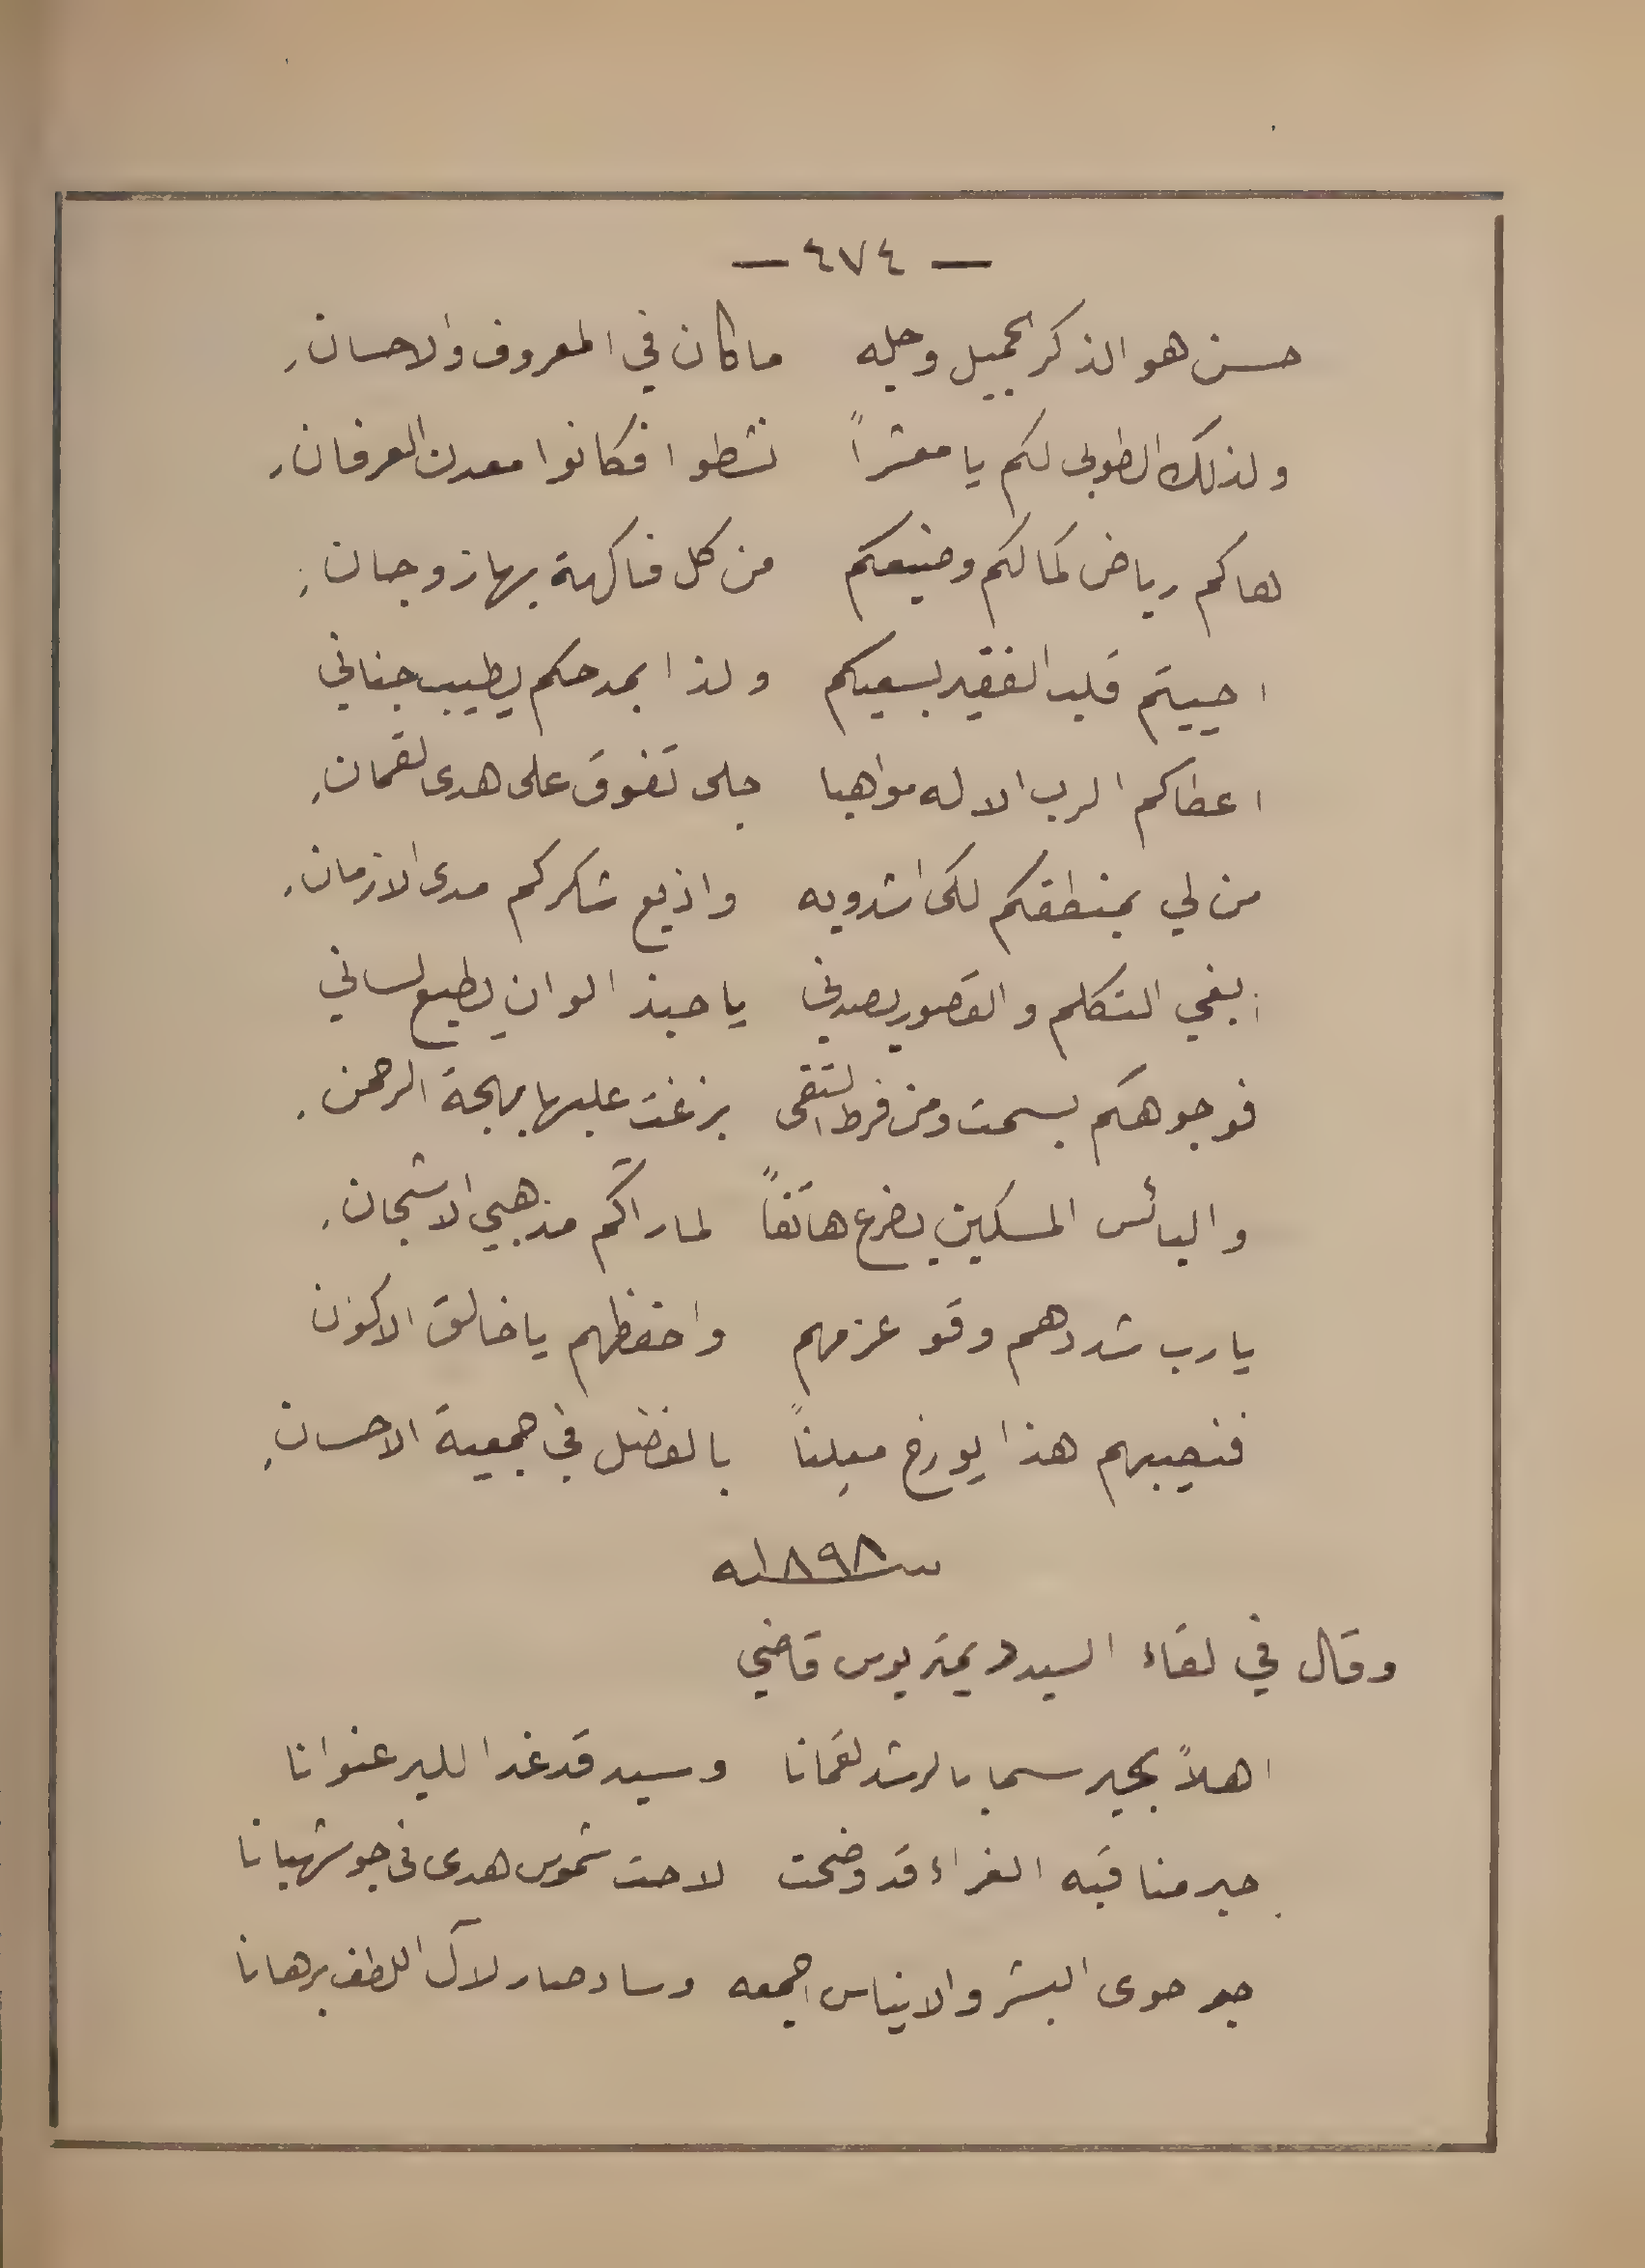 — ٤٧٤ —
حسن هو الذكر الجميل وجله ما كان في المعروف والاحسان
ولذلك الطوبى لكم يا معشراً نشطوا فكانوا معدن العرفان
هاكم رياض كمالكم وصنيعكم من كل فاكهة بها زوجان
احييتم قلب الفقير بسعيكم ولذا بمدحكم يطيب جناني
اعطاكم الرب الاله مواهبا جلى تفوق على هدى لقمان
من لي بمنطقكم لكى اشدو به واذيع شكركم مدى الازمان
ابغي التكلم والقصور يصدني يا حبذا لو ان يطيع لساني
فوجوهكم بسمت ومن فرط التقى بزغت عليها بهجة الرحمن
والبائس المسكين يضرع هاتفاً لما رآكم مذهبي الاشجان
يا رب شددهم وقو عزمهم واحفظهم يا خالق الاكوان
فنصيبهم هذا يورخ معلناً بالفضل في جمعية الاحسان
سنة ١٨٩٨
وقال في لقاء السيد ديمتريوس قاضي
اهلاً بحبر سما بالرشد لقمانا وسيد قد غدا للبر عنوانا
حبر مناقبه الغراء قد وضحت لاحت شموس هدى في جو شهبانا
جو حوى البشر والايناس اجمعه وساد صار لآل اللطف برهانا